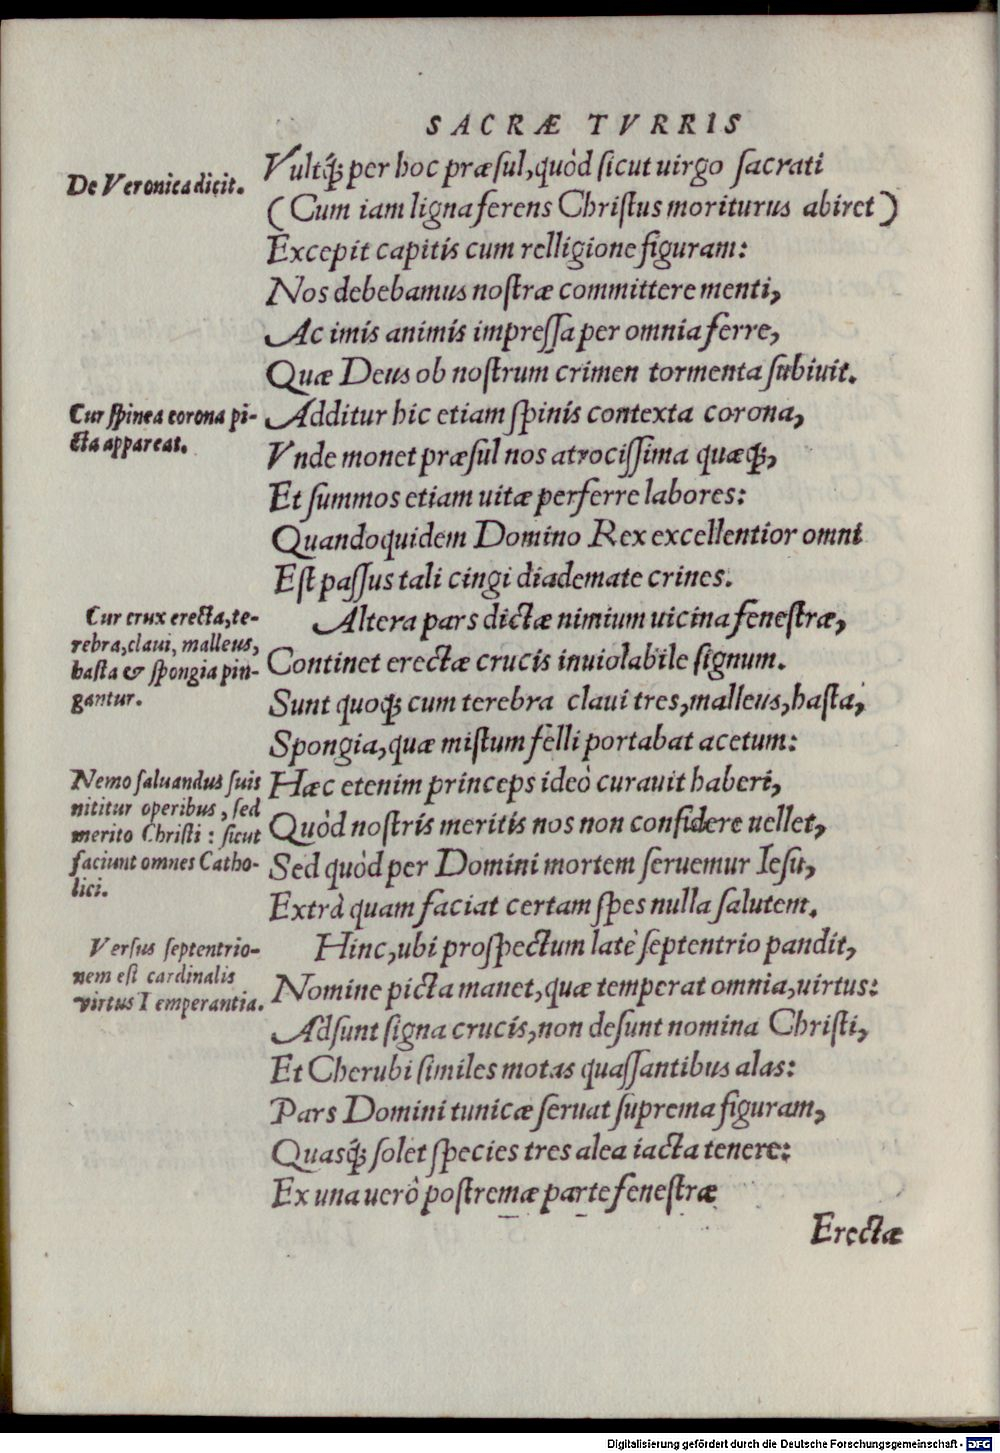 SACRÆ TVRRIS
De Veronica dicit.
Vultq́; per hoc præsul, quòd sicut uirgo sacrati
(Cum iam ligna ferens Christus moriturus abiret)
Excepit capitis cum relligione figuram:
Nos debebamus nostræ committere menti,
Ac imis animis impressa per omnia ferre,
Quæ Deus ob nostrum crimen tormenta subiuit.
Cur spinea corona pi-
cta appareat.
Additur hic etiam spinis contexta corona,
Vnde monet præsul nos atrocissima quæq;,
Et summos etiam uitæ perferre labores:
Quandoquidem Domino Rex excellentior omni
Est passus tali cingi diademate crines.
Cur crux erecta, te-
rebra, claui, malleus,
hasta & spongia pin-
gantur.
Altera pars dictæ nimium uicina fenestræ,
Continet erectæ crucis inuiolabile signum.
Sunt quoq; cum terebra claui tres, malleus, hasta,
Spongia, quæ mistum felli portabat acetum:
Nemo saluandus suis
nititur operibus, sed
merito Christi: sicut
faciunt omnes Catho-
lici.
Hæc etenim princeps ideò curauit haberi,
Quòd nostris meritis nos non confidere uellet,
Sed quòd per Domini mortem seruemur Iesu,
Extrà quam faciat certam spes nulla salutem.
Versus septentrio-
nem est cardinalis
virtus Temperantia.
Hinc, ubi prospectum latè septentrio pandit,
Nomine picta manet, quæ temperat omnia, uirtus:
Adsunt signa crucis, non desunt nomina Christi,
Et Cherubi similes motas quassantibus alas:
Pars Domini tunicæ seruat suprema figuram,
Quasq́; solet species tres alea iacta tenere:
Ex una uerò postremæ parte fenestræ
Erectæ
Digitalisierung gefördert durch die Deutsche Forschungsgemeinschaft - DFG